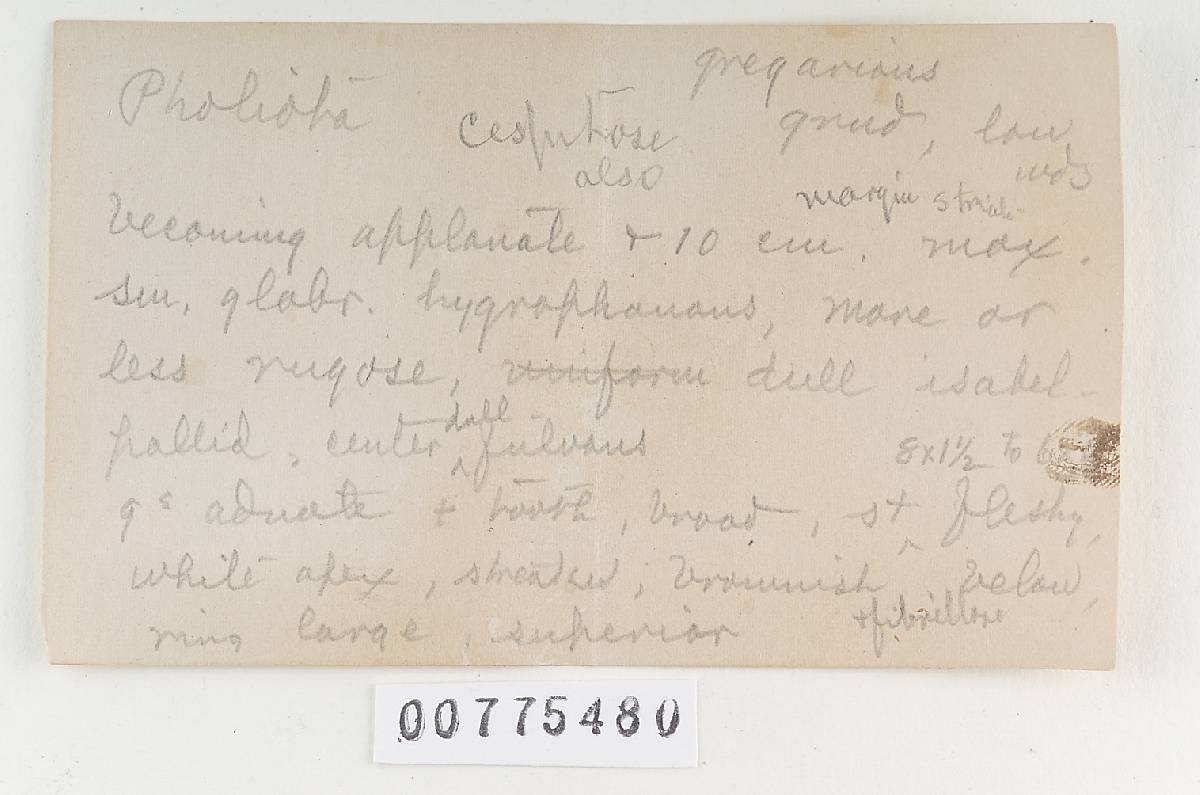 Pholiota gregarious
cespitose grnd, low
also wds
margin striate
becoming applanate + 10 cm. max.
sm. glabr. hygrophanous, more or
less rugose, uniform dull isabel-
pallid, center dull fulvous
8x1½ to 6
gs adnate + tooth, broad, st fleshy,
white apex, streaked, brownish below,
+ fibrillose
ring large, superior
00775480